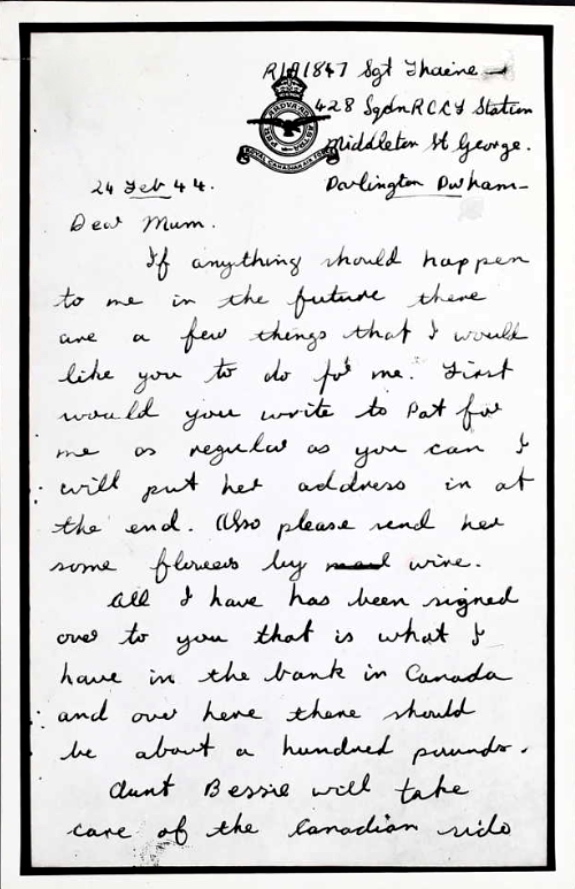 R191847 Sgt Thaine
428 Sqdn RCCF Station
Middleton St George.
Darlington Durham
PER ARDVA AD ASTRA
ROYAL CANADIAN AIR FORCE
24 Feb 44.
Dear Mum.
If anything should happen
to me in the future there
are a few things that I would
like you to do for me. First
would you write to Pat for
me as regular as you can I
will put her address in at
the end. Also please send her
some flowers by wire.
All I have has been signed
over to you that is what I
have in the bank in Canada
and over here there should
be about a hundred pounds.
Aunt Bessie will take
care of the Canadian side